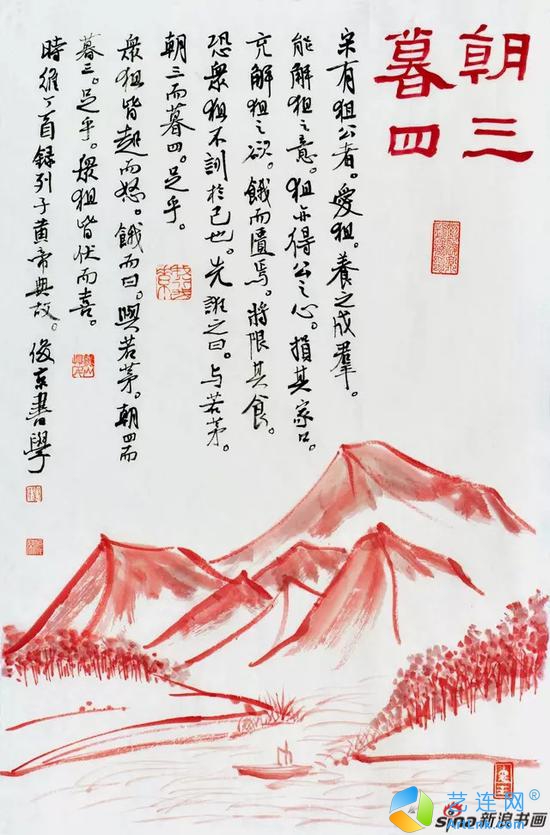 朝三
暮四
宋有狙公者。愛狙。養之成羣。
能解狙之意。狙亦得公之心。損其家口。
充解狙之欲。餓而匱焉。將限其食。
恐衆狙不訓於己也。先誑之曰。与若茅。
朝三而暮四。足乎。
衆狙皆起而怒。餓而曰。與若茅。朝四而
暮三。足乎。衆狙皆伏而喜。
時維丁酉錄列子黄帝典故。俊京書學
艺连网
sina新浪书画